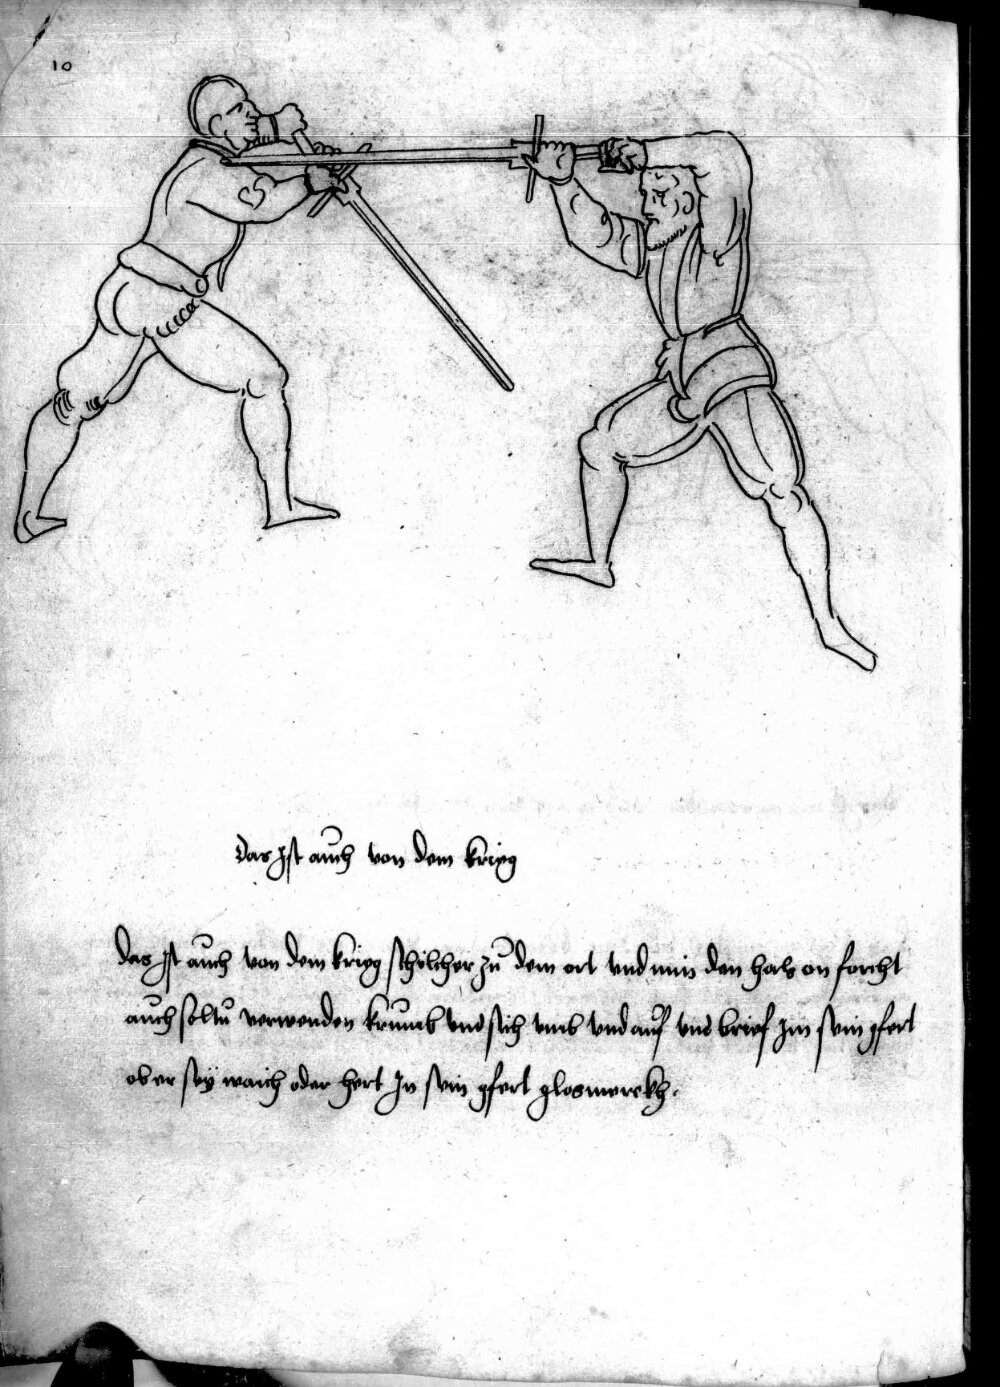 10
Das ist auch von dem krieg
Das ist auch von dem krieg schilcher zu dem ort und nim den hals on forcht
auch soltu verwenden krumb und stich umb und auf und brief Im sein gfert
ob er sey waich oder hert In sein gfert glosmerckh.